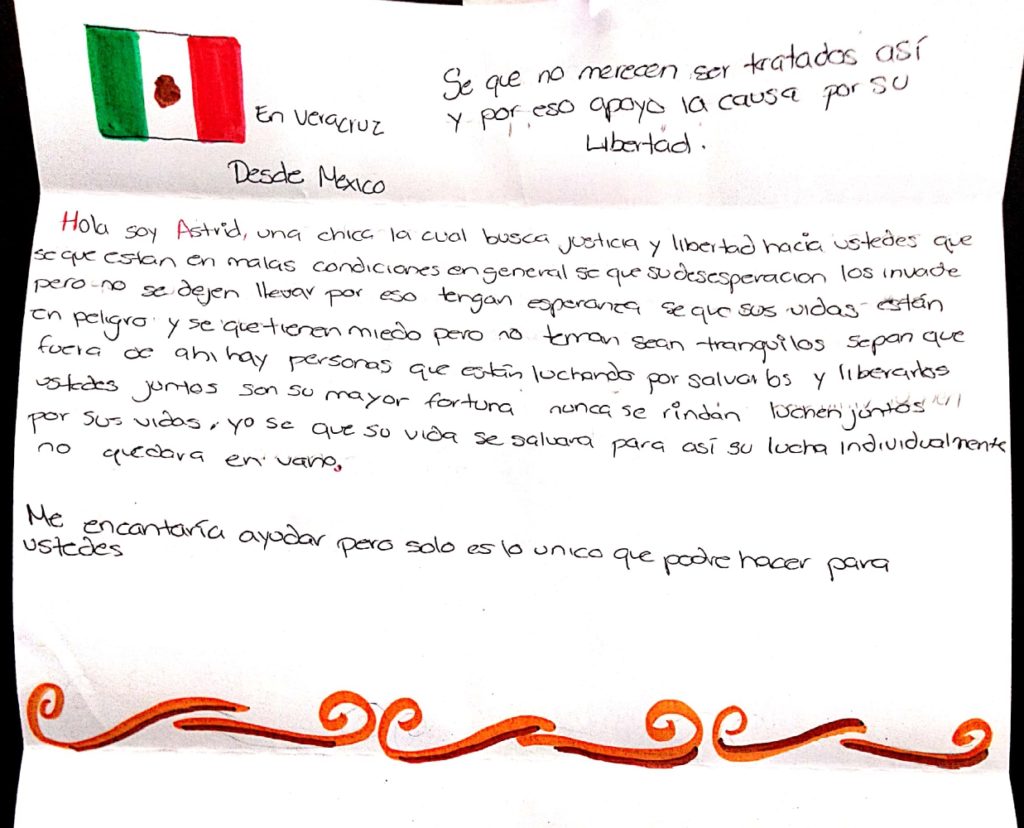 En Veracruz
Desde Mexico
Se que no merecen ser tratados así
y por eso apoyo la causa por su
Libertad.
Hola soy Astrid, una chica la cual busca justicia y libertad hacia ustedes que
se que estan en malas condiciones en general se que su desesperacion los invade
pero no se dejen llevar por eso tengan esperanza se que sus vidas están
en peligro y se que tienen miedo pero no teman sean tranquilos sepan que
fuera de ahi hay personas que están luchando por salvarlos y liberarlos
ustedes juntos son su mayor fortuna nunca se rindán luchen juntos
por sus vidas, yo se que su vida se salvara para así su lucha individualmente
no quedara en vano.
Me encantaría ayudar pero solo es lo unico que podre hacer para
ustedes